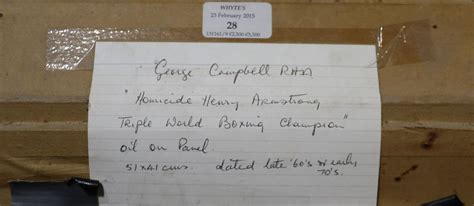 WHYTE'S
23 February 2015
28
George Campbell RHA
"Homicide Henry Armstrong
Triple World Boxing Champion"
oil on Panel.
51x41cms. dated late '60's or early
70's.